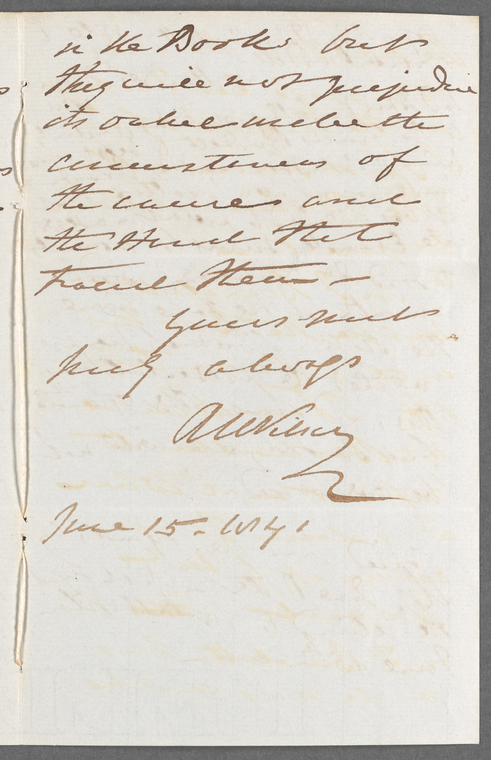 in the Book: but
they will not prejudice
its value
circumstances of
the and
the Hand that
traced them —
Yours most
truly always
June 15. 1841